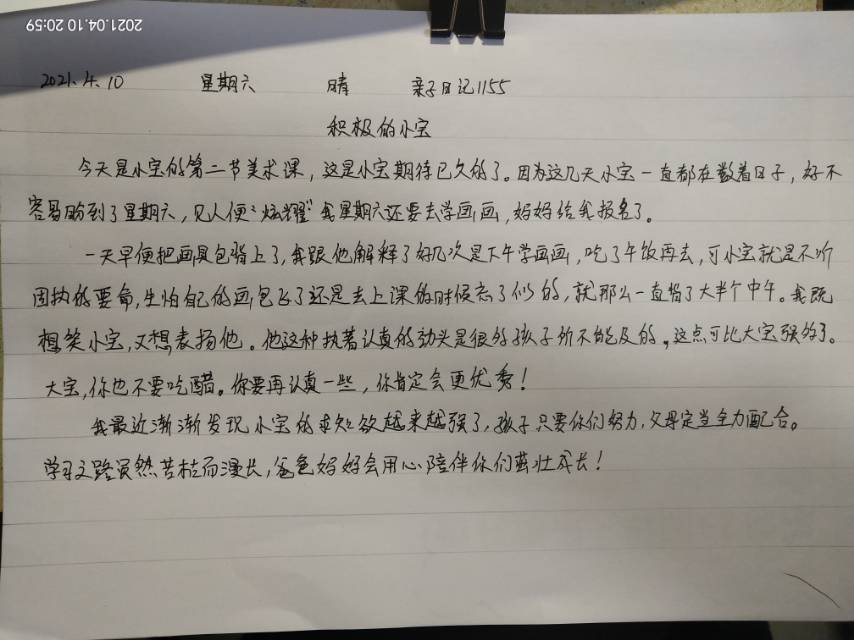 2021.04.10 20:59
2021.4.10 星期六 晴 亲子日记1155
积极的小宝
今天是小宝的第二节美术课，这是小宝期待已久的了。因为这几天小宝一直都在数着日子，好不
容易盼到了星期六，见人便“炫耀”我星期六还要去学画画，妈妈给我报名了。
一天早便把画具包背上了，我跟他解释了好几次是下午学画画，吃了午饭再去，可小宝就是不听
固执的要命，生怕自己的画包飞了还是去上课的时候忘了似的，就那么一直背了大半个中午。我既
想笑小宝，又想表扬他。他这种执着认真的劲头是很多孩子所不能及的，这点可比大宝强多了。
大宝，你也不要吃醋。你要再认真一些，你肯定会更优秀！
我最近渐渐发现小宝的求知欲越来越强了，孩子只要你们努力，父母定当全力配合。
学习之路虽然苦枯而漫长，爸爸妈妈会用心陪伴你们茁壮成长！